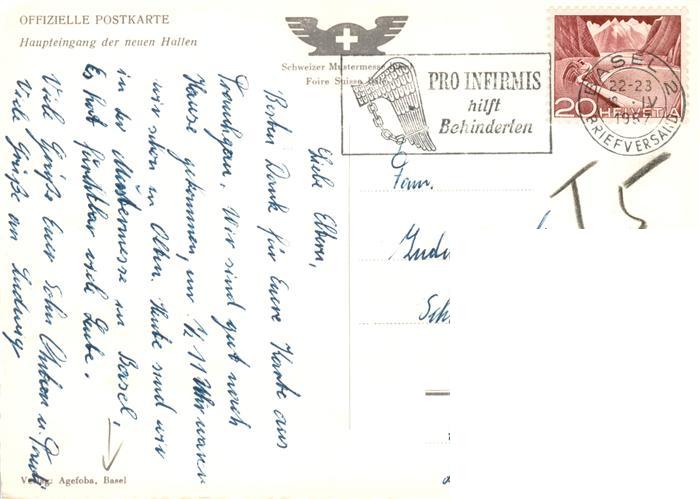 OFFIZIELLE POSTKARTE
Haupteingang der neuen Hallen
Schweizer Mustermesse
Foire Suisse
PRO INFIRMIS
hilft
Behinderten
BASEL 2
22-23
IV
1957
BRIEFVERSAND
20 HELVETIA
Liebe Eltern,
Besten Dank für Eure Karte aus
Wir sind gut nach
Hause gekommen, um ½ 11 Uhr waren
wir schon in Olten. Heute sind wir
in der Mustermesse in Basel,
Es hat furchtbar viele Leute.
Viele Grüße Euer Sohn
Viele Grüße an Ludwig
Fam.
T 5
Verlag: Agefoba, Basel